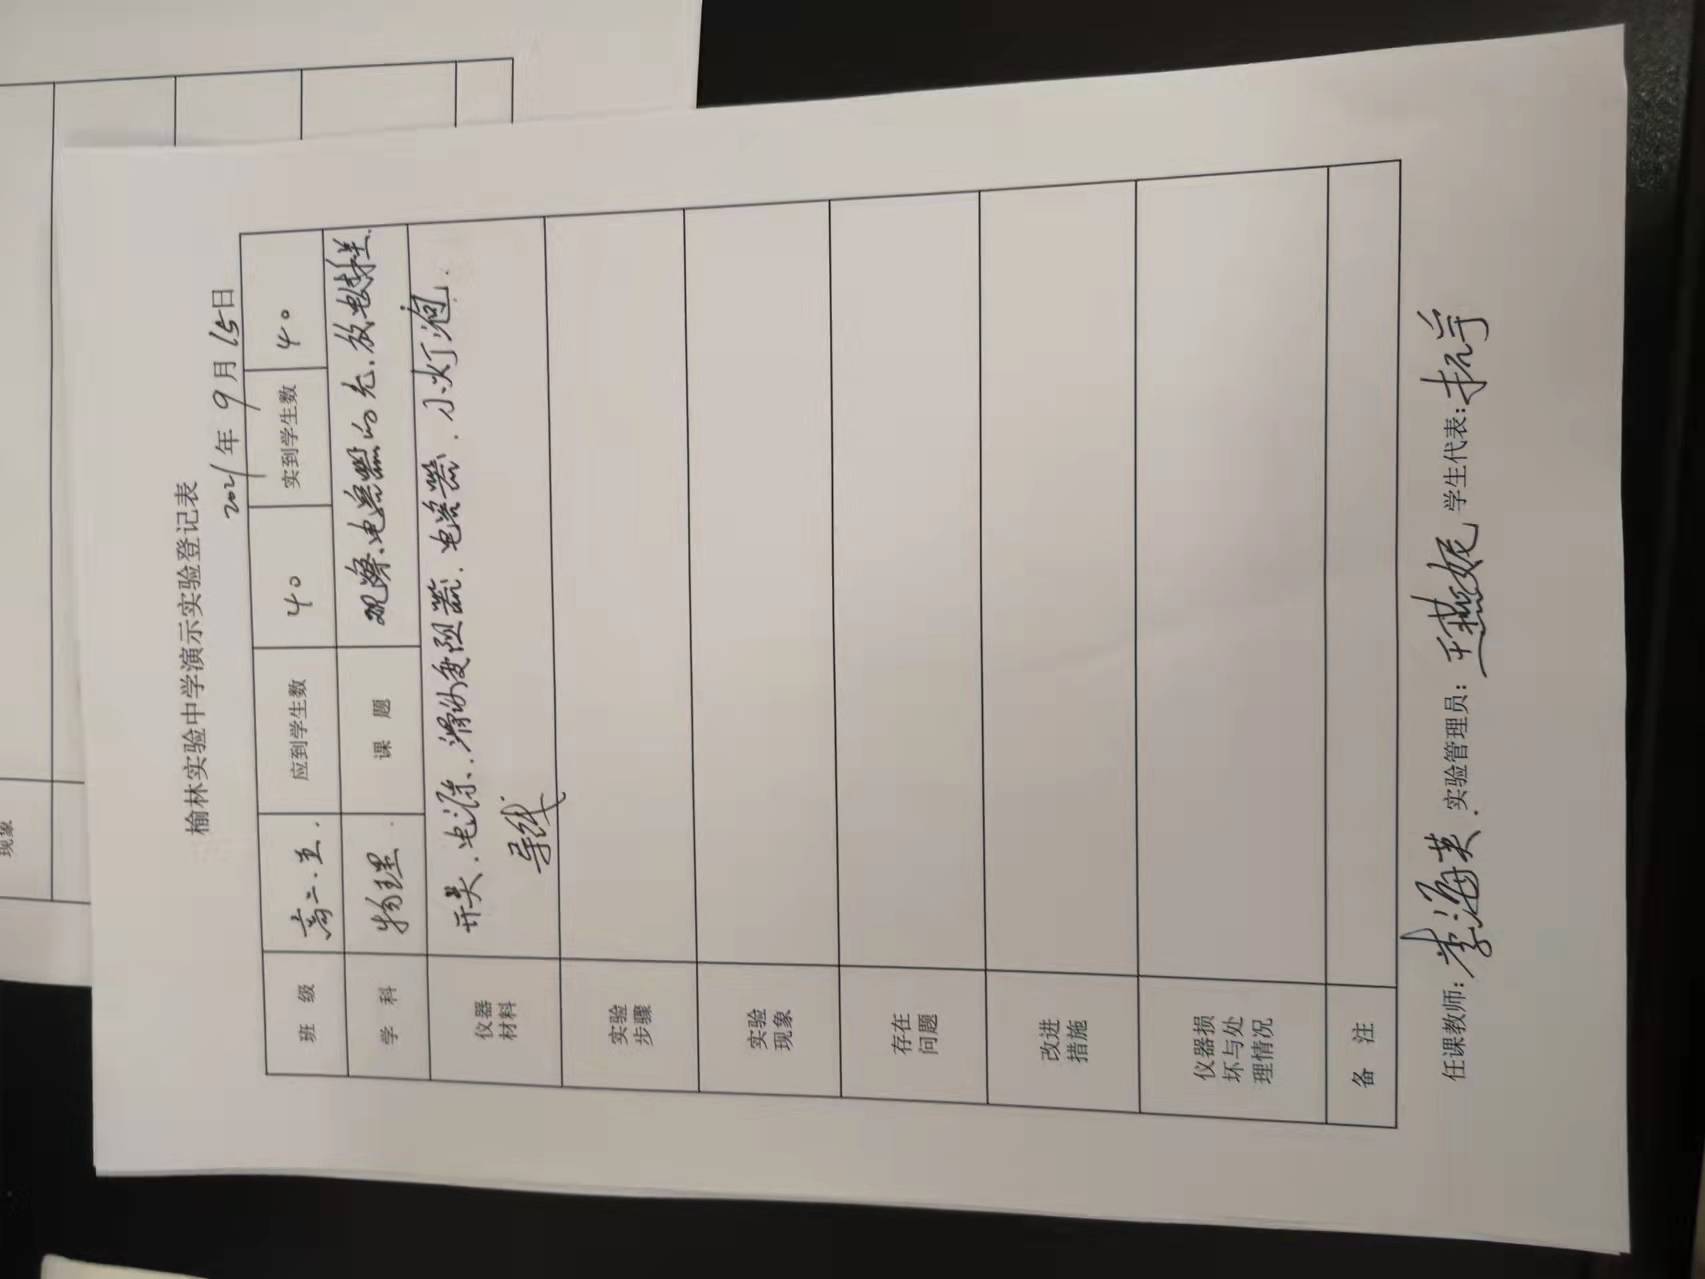 榆林实验中学演示实验登记表
2021年 9月 15日
班 级 高二.五. 应到学生数 40 实到学生数 40
学 科 物理. 课 题 观察.电容器的充.放电过程.
仪器 开关.电源.滑动变阻器.电容器.小灯泡.
材料 导线
实验
步骤
实验
现象
存在
问题
改进
措施
仪器损
坏与处
理情况
备 注
任课教师: 李海英. 实验管理员: 王燕妮 学生代表:
现象